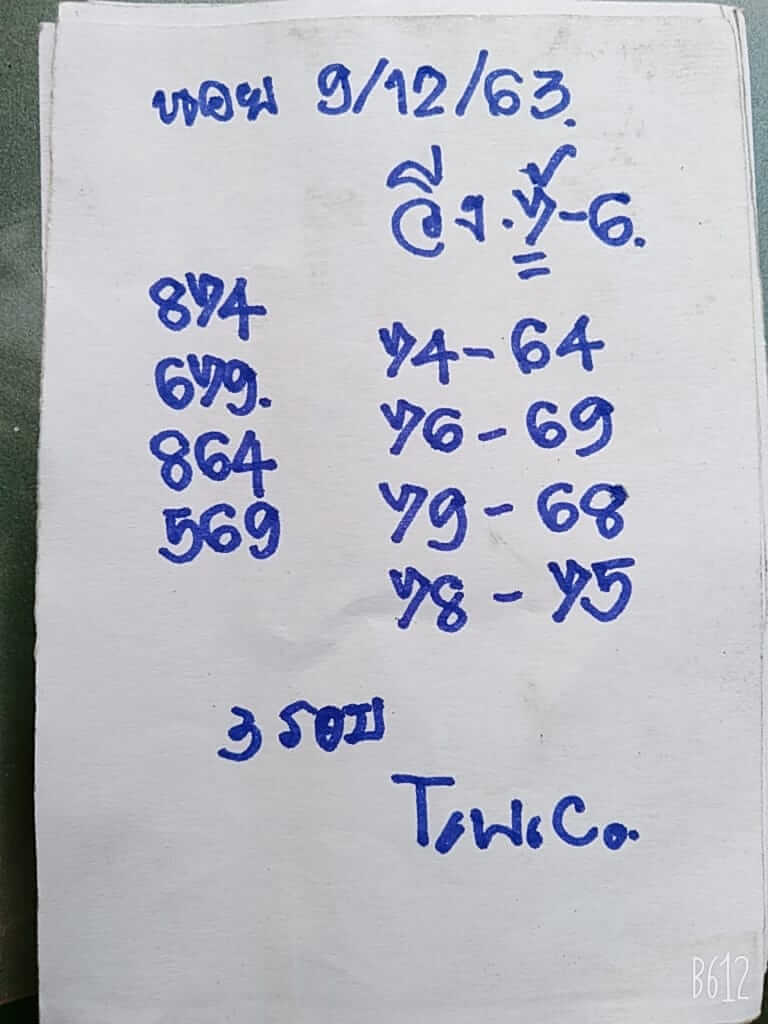 หอย 9/12/63.
วิ่ง.7-6.
874
679.
864
569
74-64
76-69
79-68
78-75
3 รอบ
B612